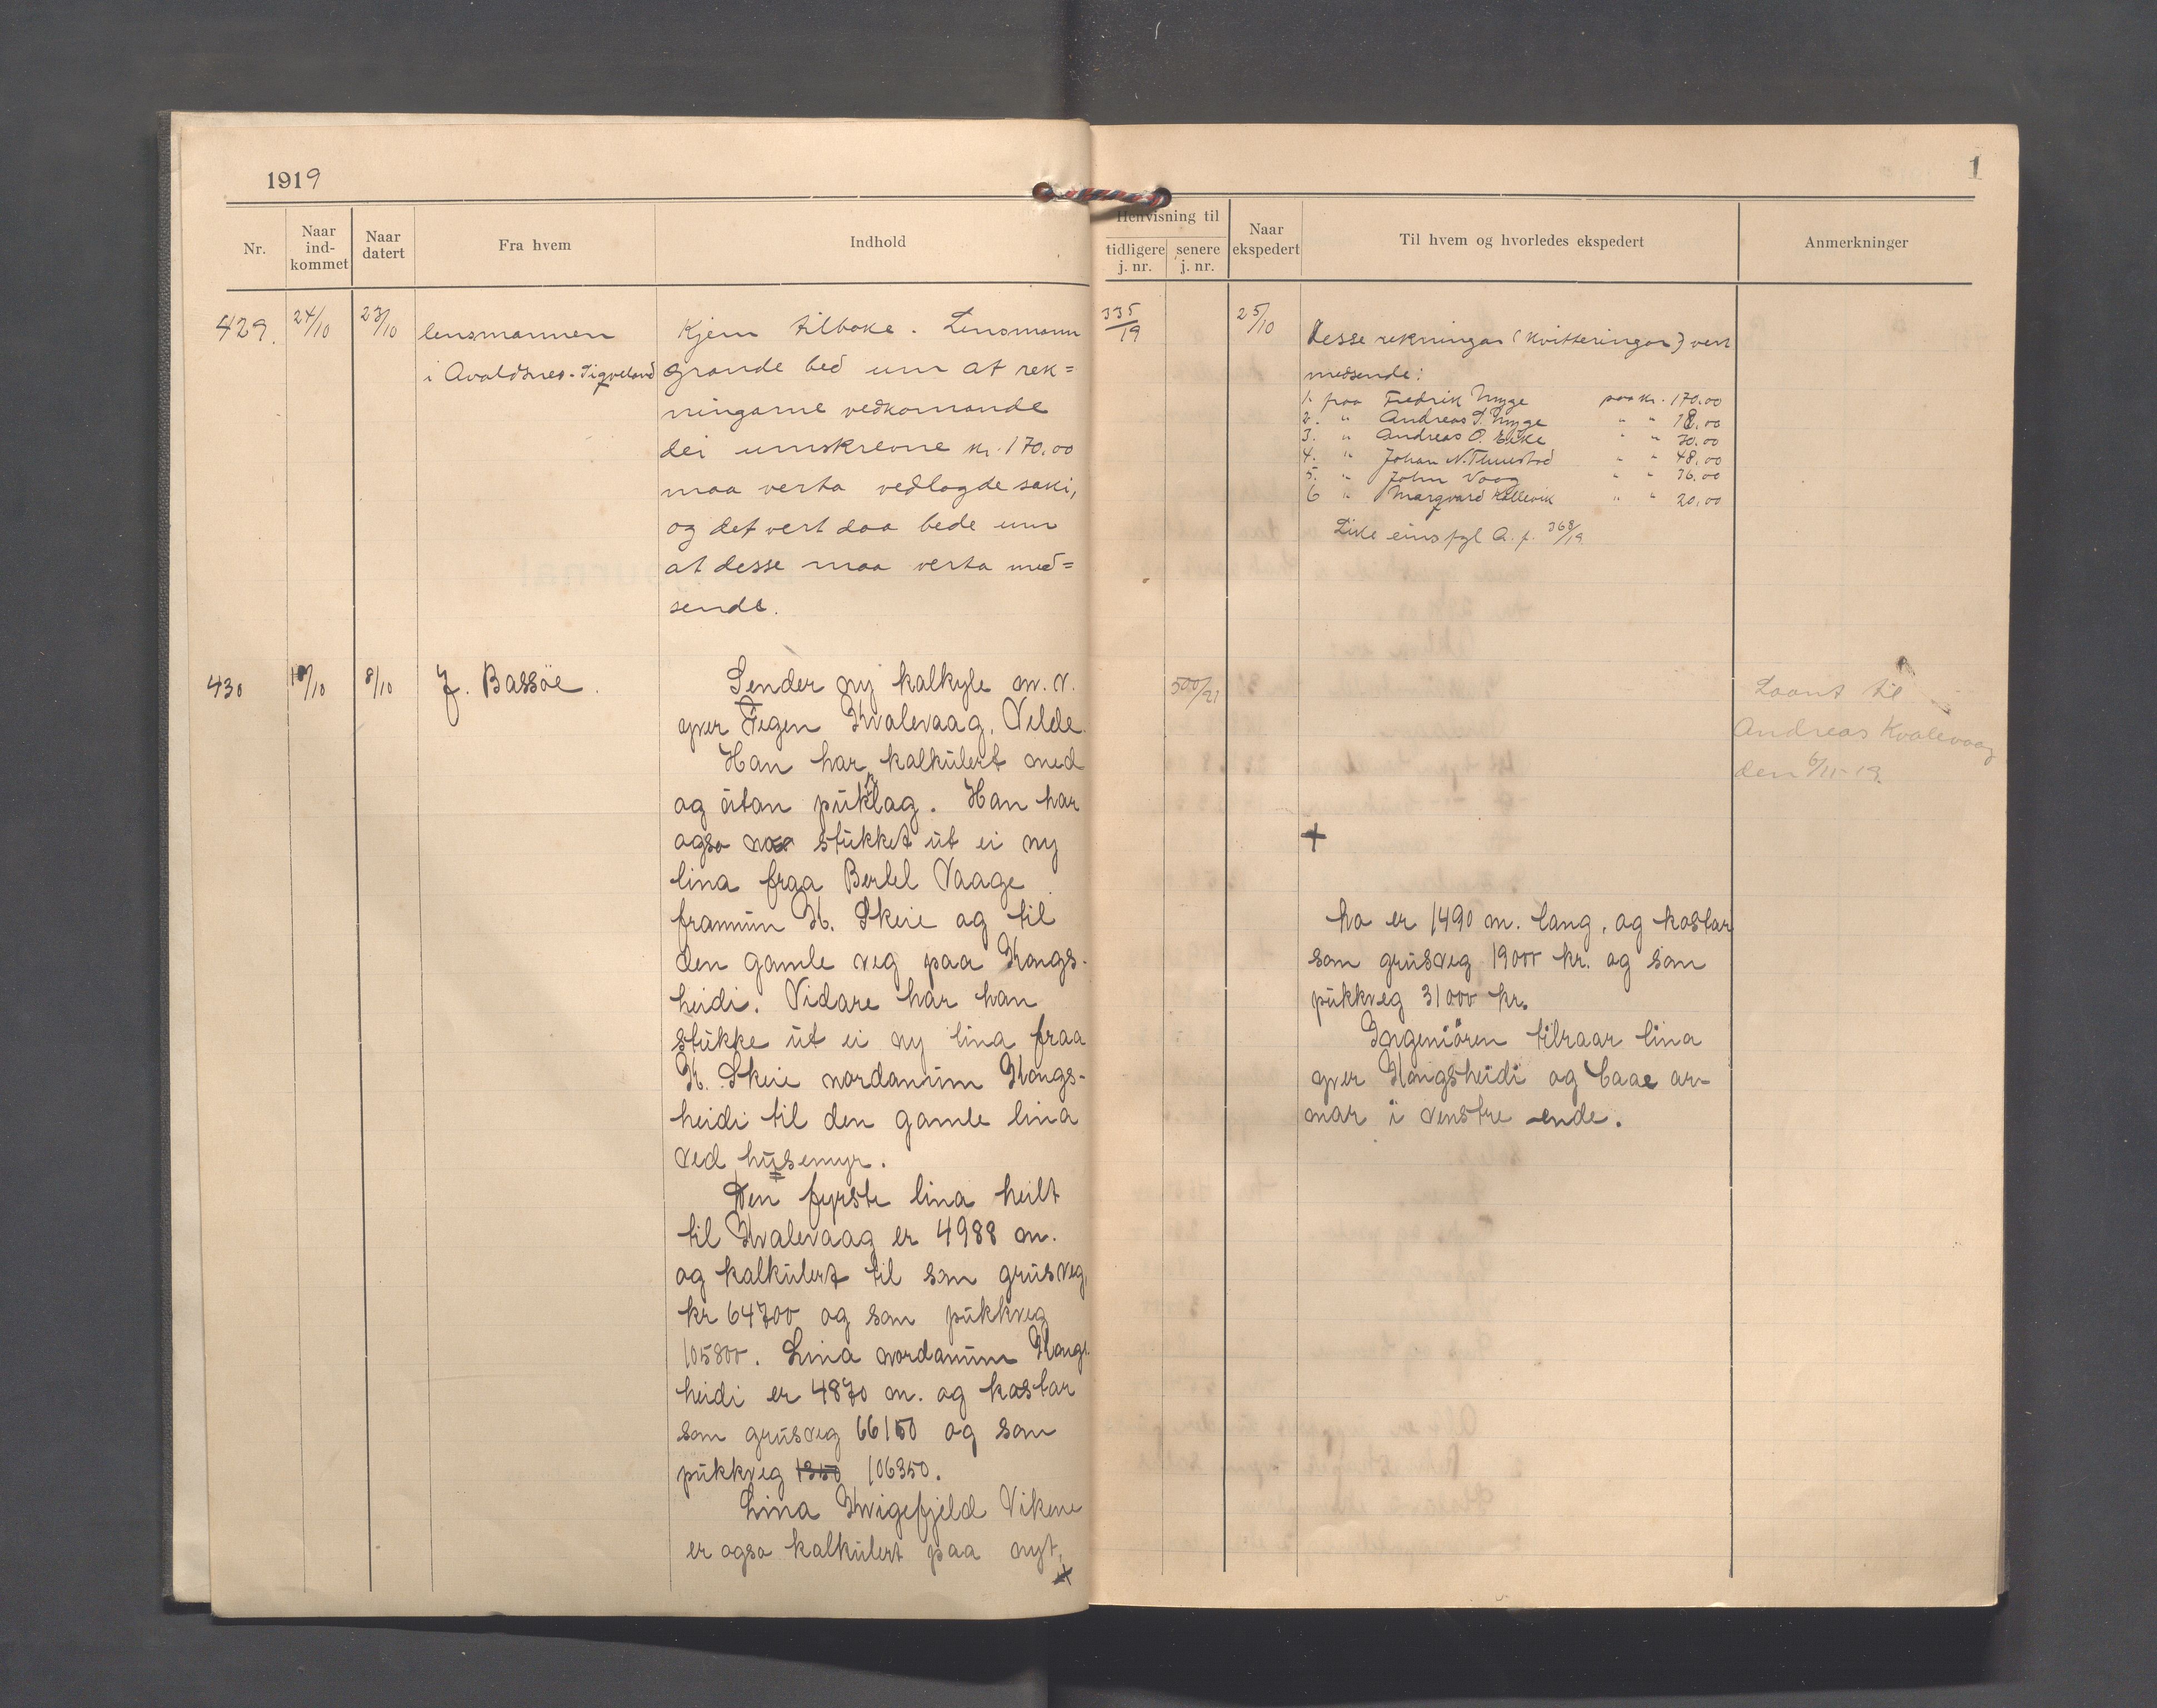 1919
1
Nr.
Naar ind-kommet
Naar datert
Fra hvem
Indhold
Henvisning til
tidligere j. nr.
senere j. nr.
Naar ekspedert
Til hvem og hvorledes ekspedert
Anmerkninger
429.
24/10
23/10
lensmannen
i Avaldsnes - Tigveland
Kjem tilbake. Lensmann
Grande bed um at rek=
ningarne vedkomande
dei umskrevne kr. 170.00
maa verta vedlagde saki,
og det vert daa bede um
at desse maa verta med=
sende.
335/19
25/10
Desse rekningar (kvitteringar) vert
medsende:
1. fraa Fredrik Myge paa kr. 170.00
2. " Andreas T. Myge " " 18.00
3. " Andreas O. Eike " " 70.00
4. " Johan N. " " 48.00
5. " John Vaag " " 36.00
6 " Margvard Kallevik " " 20.00
Like eins fyl A. f. 368/19
430
10/10
8/10
J. Bassöe.
Sender ny kalkyle m. v.
yver Vegen Kvalevaag, Velde.
Han har kalkulert med
og utan puklag. Han har
ogso stukket ut ei ny
lina fraa Bertel Vaage
framum K. Skeie og til
den gamle veg paa Kongs-
heidi. Vidare har han
stukke ut ei ny lina fraa
K. Skeie nordanum Kongs-
heidi til den gamle lina
ved husemyr.
Den fyrste lina heilt
til Kvalevaag er 4988 m.
og kalkulert til som grusveg,
kr 64700 og som pukkveg
105800. Lina nordanum Kongs-
heidi er 4870 m. og kostar
som grusveg 66150 og som
pukkveg 1350 106350.
Lina Kvigefjeld Vikene
er ogso kalkulert paa nyt,
+
500/21
+
ho er 1490 m. lang, og kostar
som grusveg 19000 kr. og som
pukkveg 31000 kr.
Ingeniören tilraar lina
yver Kongsheidi og baae ar-
mar i venstre ende.
Laant til
Andreas Kvalevaag
den 6/11-19.